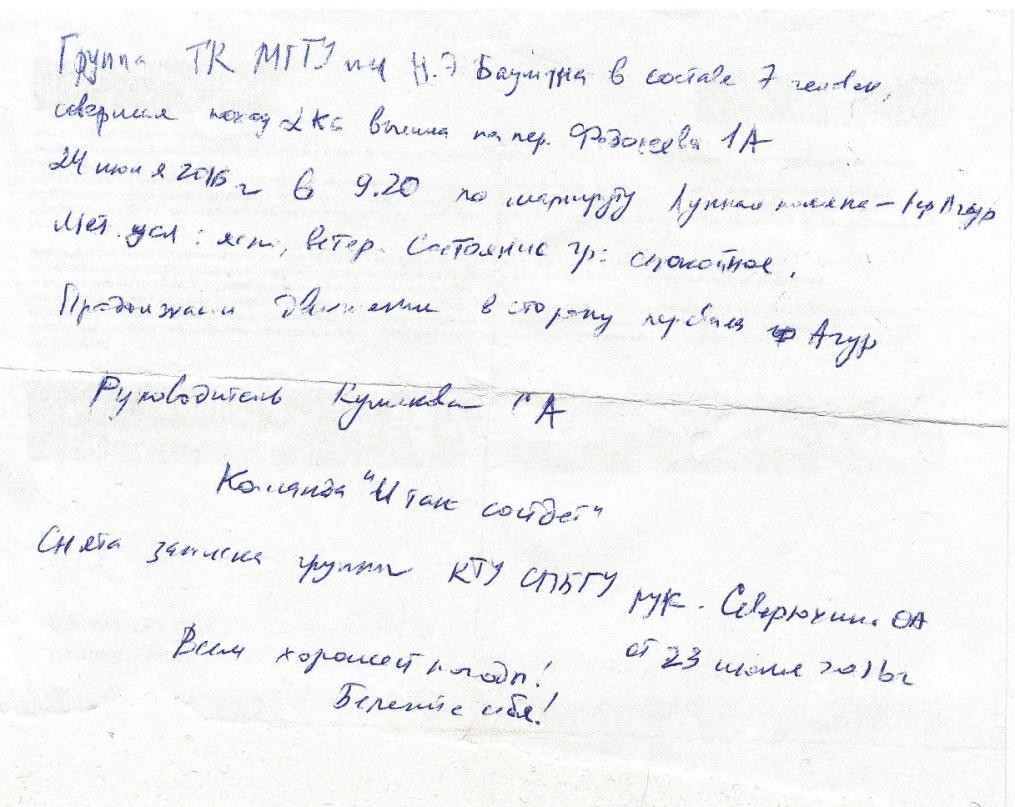 Группа ТК МГТУ им Н.Э Баумана в составе 7 человек,
совершая поход 2 КС вышла на пер. Федосеева 1А
24 июля 2016 г в 9.20 по маршруту Лунная поляна – пер Агур
Мет. усл : ясно, ветер. Состояние гр: спокойное.
Продолжаем движение в сторону перевала Агур
Руководитель Куликова А
Команда "И так сойдет"
Снята записка группы КТУ СПбГУ рук. Северюхин ОА
от 23 июля 2016г
Всем хорошей погоды!
Берегите себя!